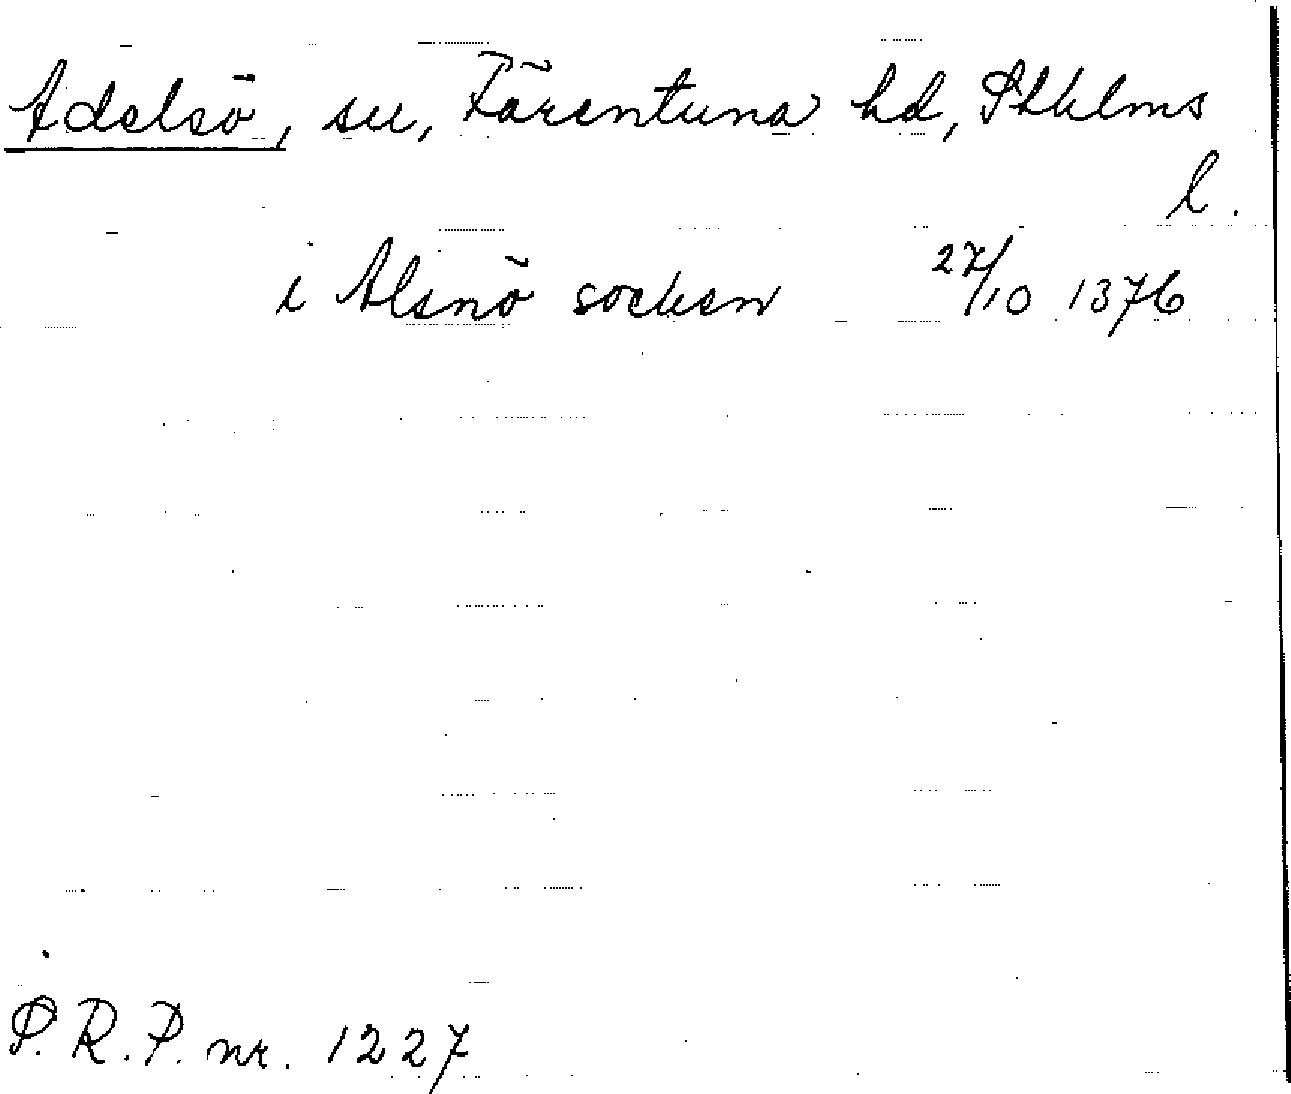 Adelsö, sn, Färentuna hd, Sthlms
l.
i Alsnö socken 27/10 1376
S.R.P. nr. 1227